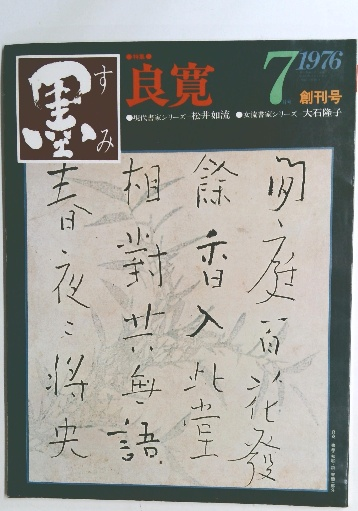 墨
すみ
●特集●
良寛
7
1976
創刊号
●現代書家シリーズ 松井如流 ●女流書家シリーズ 大石隆子
閒庭百花發
餘香入此堂
相對共無語
春夜々将央